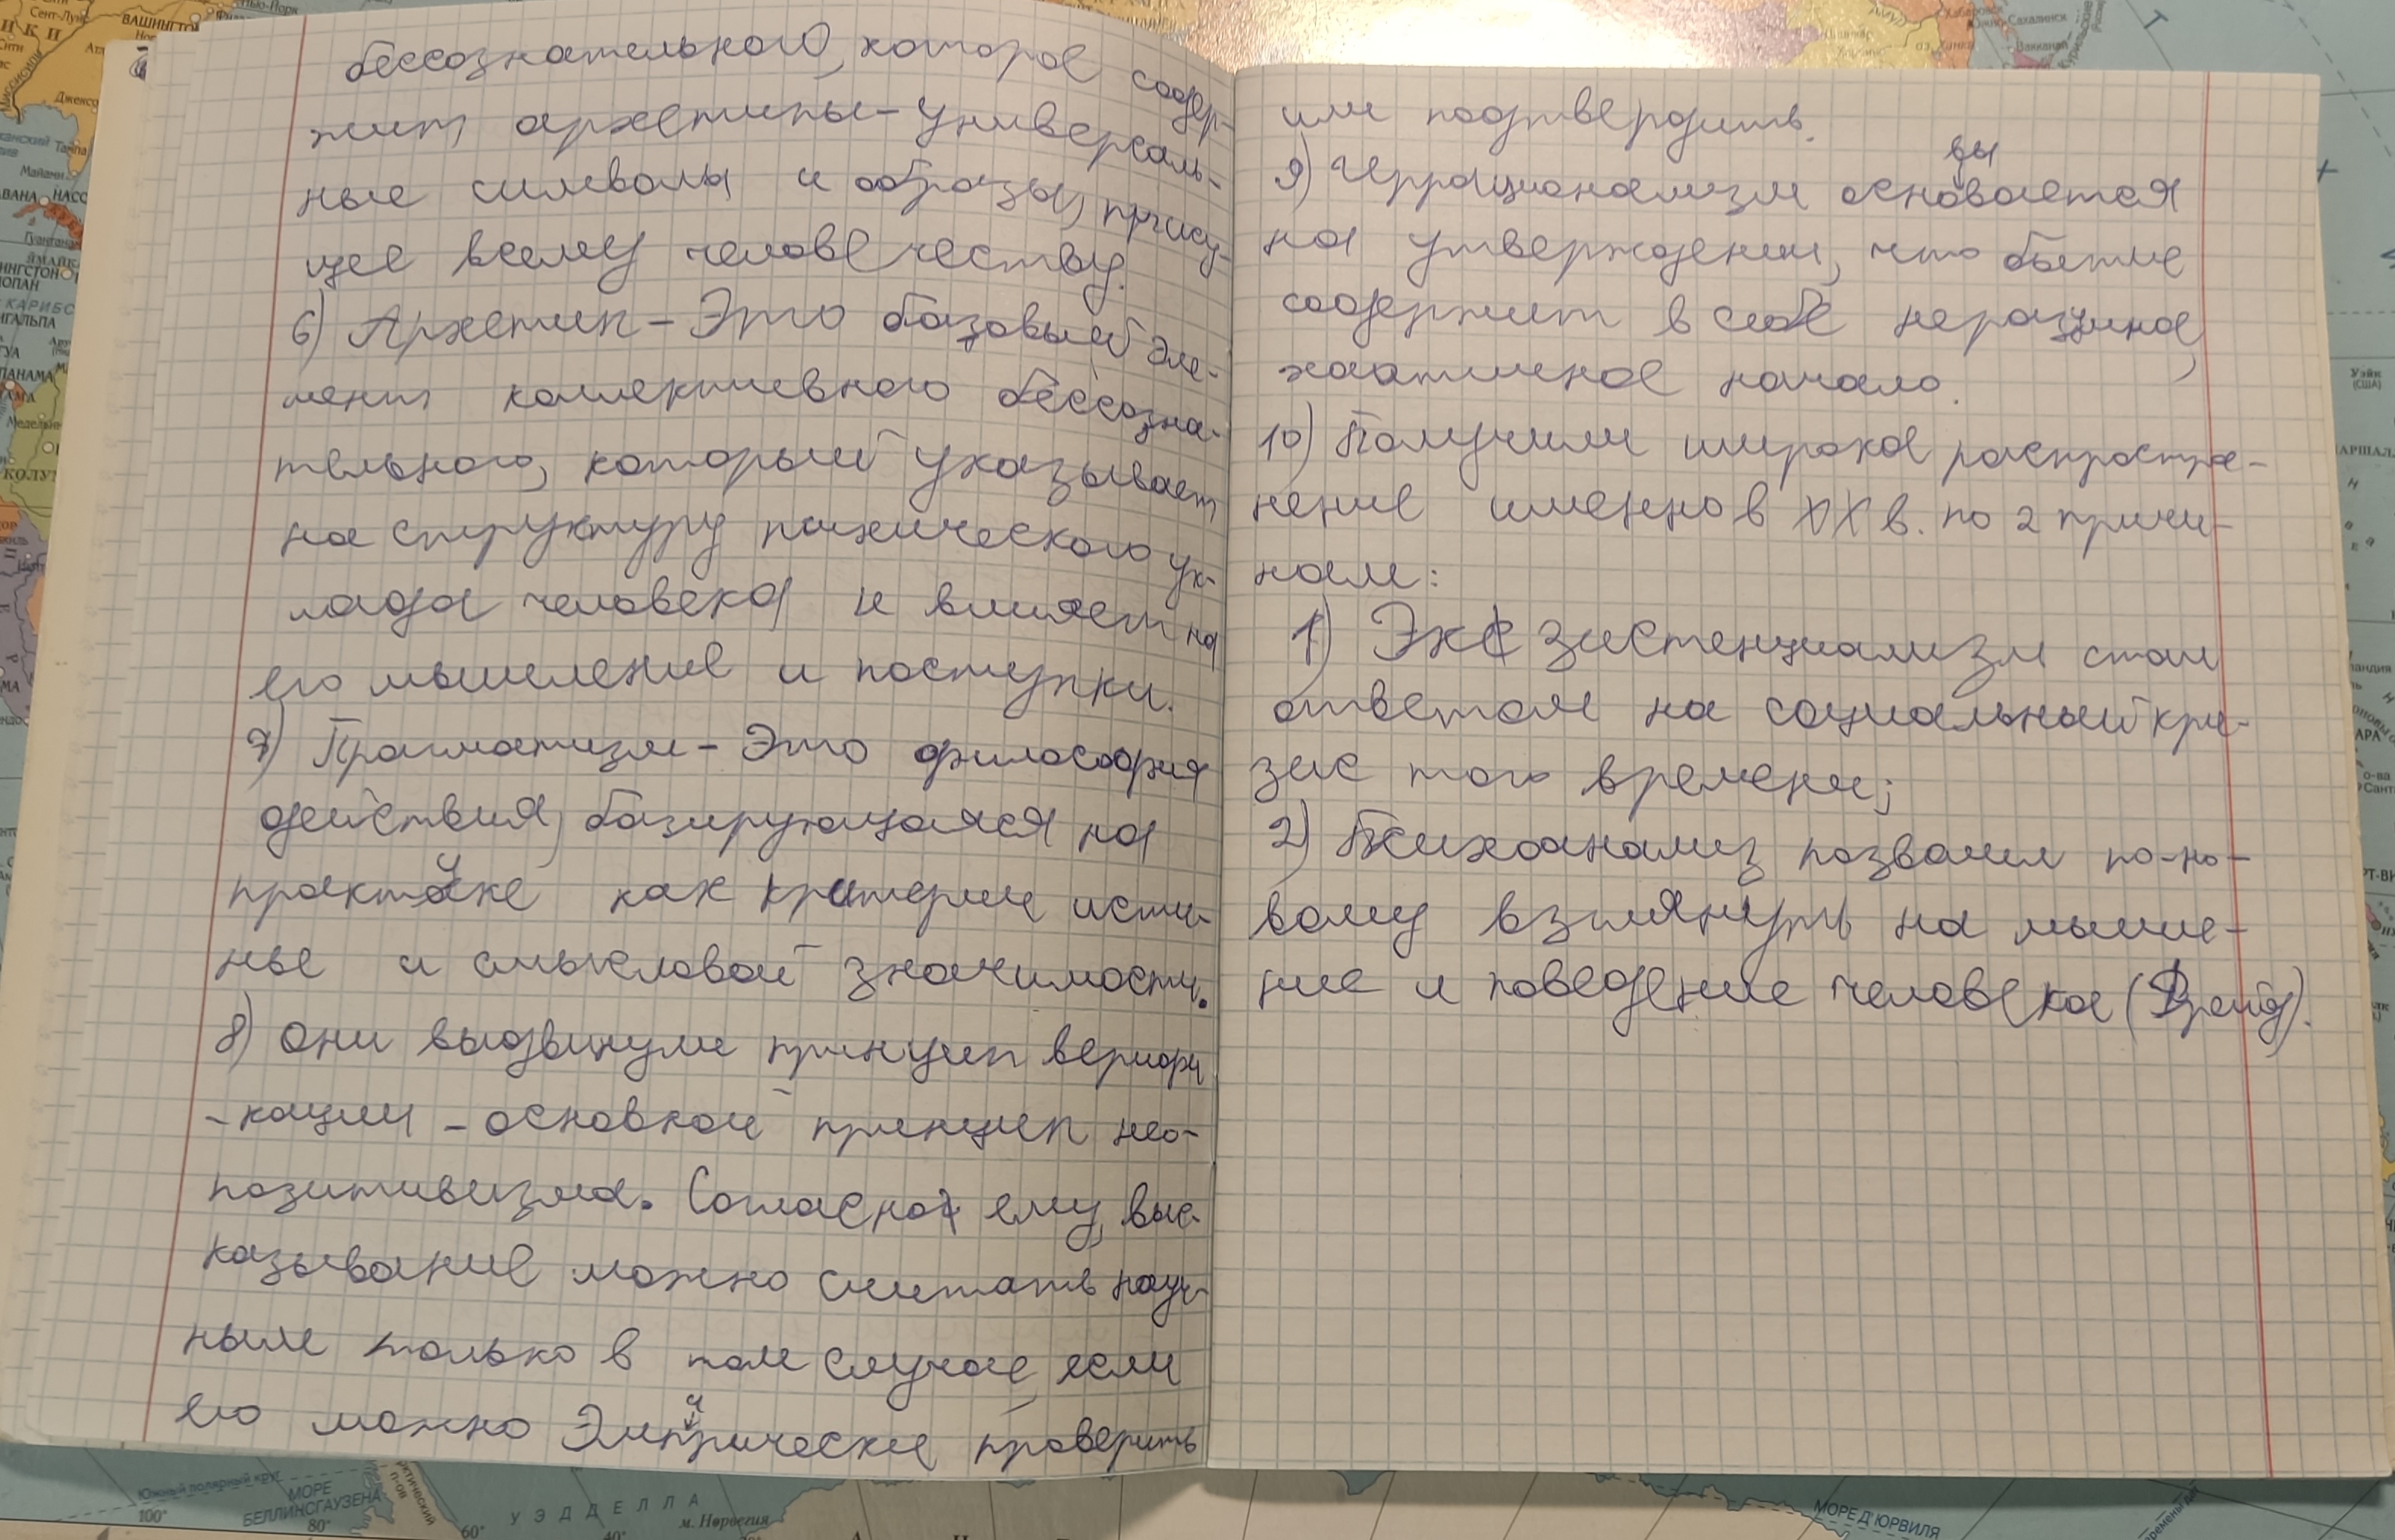 бессознательного, которое содер-
жит архетипы - универсаль-
ные символы и образы, прису-
щее всему человечеству.
6) Архетип - Это базовый эле-
мент коллективного бессозна-
тельного, который указывает
на структуру психического ук-
лада человека и влияет на
его мышеление и поступки.
7) Прагматизм - Это философия
действия, базирующаяся на
практике как критерии исти-
ные и смысловой значимости.
8) Они выдвинули принцип верифи
-кации - основной принцип нео-
позитивизма. Согласно ему, выс-
казывание можно считать науч-
ным только в том случае, если
его можно Эмпирически проверить
или подтвердить.
9) Иррационализм основывается
на утверждении, что бытие
содержит в себе нерацинов,
хаотичное начало.
10) Получили широкое распростра-
нение именно в XX в. по 2 причи-
нам:
1) Экзистенциализм стал
ответом на социальный кри-
зис того времени;
2) Психоанализ позволил по-но-
вому взглянуть на мышле-
ние и поведение человека (Фрейд).
ВАШИНГТОН
Майами
ПАНАМА
Южный полярный круг
МОРЕ
БЕЛЛИНСГАУЗЕНА
100°
80°
60°
40°
УЭДДЕЛЛА
м. Норвегия
МОРЕ Д'ЮРВИЛЯ
Уэйк
(США)